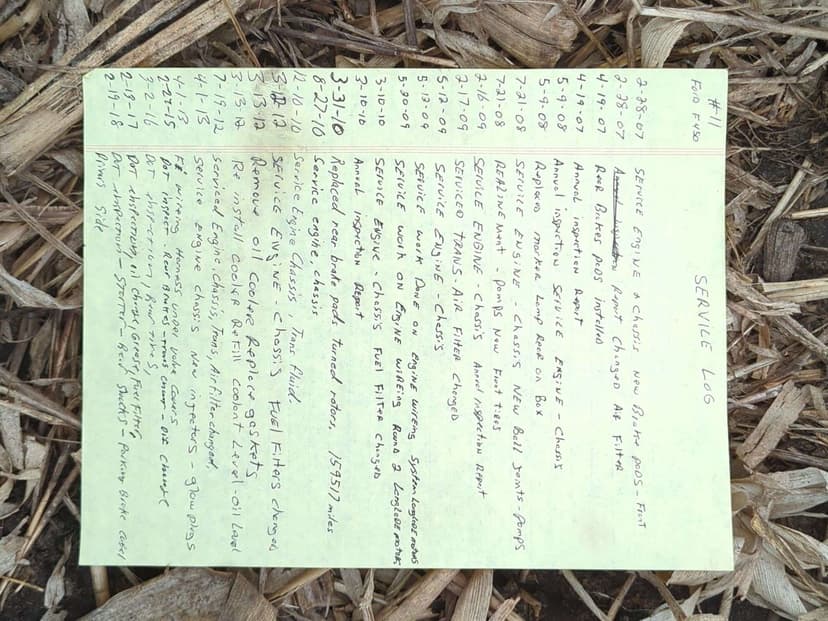 #11
SERVICE LOG
FORD F450
2-28-07 SERVICE ENGINE & Chassis NEW Brake PODS - Front
2-28-07 Report Changed AIR FILTER
4-19-07 REAR BRAKES PODS INSTALLED
4-19-07 Annual inspection Report
5-9-08 Annual inspection SERVICE ENGINE - Chassis
5-9-08 Replaced marker Lamp REAR on Box
7-21-08 SERVICE ENGINE - CHASSIS NEW Ball Joints - Pomps
7-21-08 REALINEMENT - Pomps NEW Front tires
2-16-09 SERVICE ENGINE - Chassis Annual inspection REPORT
2-17-09 SERVICED TRANS - AIR FILTER Changed
5-12-09 SERVICE ENGINE - Chassis
5-12-09 SERVICE WORK DONE ON ENGINE WIREING SYSTEM Longlode motors
5-20-09 SERVICE WORK ON ENGINE WIREING Round 2 Longlode motors
3-10-10 SERVICE ENGINE - CHASSIS FUEL FILTER Changed
3-10-10 Annual inspection Report
3-31-10 Replaced rear brake pads turned rotors, 159517 miles
8-27-10 Service engine, chassis
12-10-10 Service Engine Chassis, Trans Fluid
3-12-12 SERVICE ENGINE - Chassis FUEL FILTERS changed
3-13-12 Remove oil cooler Replace gaskets
3-13-12 Re install cooler Refill coolant Level - oil Level
7-19-12 Serviced Engine, Chassis, Trans, Air Filter changed,
4-1-13 Service Engine chassis New injectors - glow plugs
4-1-13 Fix wireing Harness under valve covers
2-27-15 DOT inspect - Rear Brakes - trans cover - oil change
3-2-16 DOT inspection / Rear tires,
2-19-17 DOT inspection, oil change, Grease, Fuel Filter
2-19-18 DOT inspection - Starter - Rear Shocks - Parking Brake cable
Drivers Side